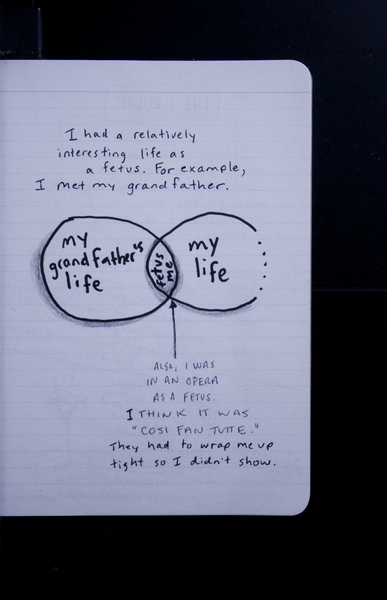 I had a relatively
interesting life as
a fetus. For example,
I met my grandfather.
my
grandfather's
life
fetus
me
my
life
ALSO, I WAS
IN AN OPERA
AS A FETUS.
I THINK IT WAS
"COSI FAN TUTTE."
They had to wrap me up
tight so I didn't show.